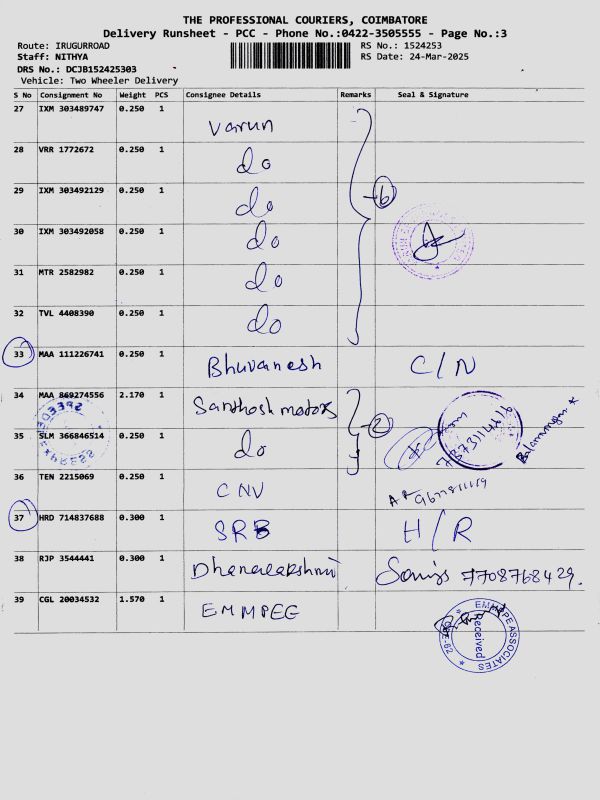 THE PROFESSIONAL COURIERS, COIMBATORE
Delivery Runsheet - PCC - Phone No.:0422-3505555 - Page No.:3
Route: IRUGURROAD RS No.: 1524253
Staff: NITHYA RS Date: 24-Mar-2025
DRS No.: DCJB152425303
Vehicle: Two Wheeler Delivery
S No Consignment No Weight PCS Consignee Details Remarks Seal & Signature
27 IXM 303489747 0.250 1 Varun
28 VRR 1772672 0.250 1 do
29 IXM 303492129 0.250 1 do 6
30 IXM 303492058 0.250 1 do
31 MTR 2582982 0.250 1 do
32 TVL 4408390 0.250 1 do
33 MAA 111226741 0.250 1 Bhuvanesh C/N
34 MAA 869274556 2.170 1 Santhosh motors 2
35 SLM 366846514 0.250 1 do
36 TEN 2215069 0.250 1 CNV
37 HRD 714837688 0.300 1 SRB H/R
38 RJP 3544441 0.300 1 Dhanalakshmi 7708768429.
39 CGL 20034532 1.570 1 EMMPEE
EMMPE ASSOCIATES
Received